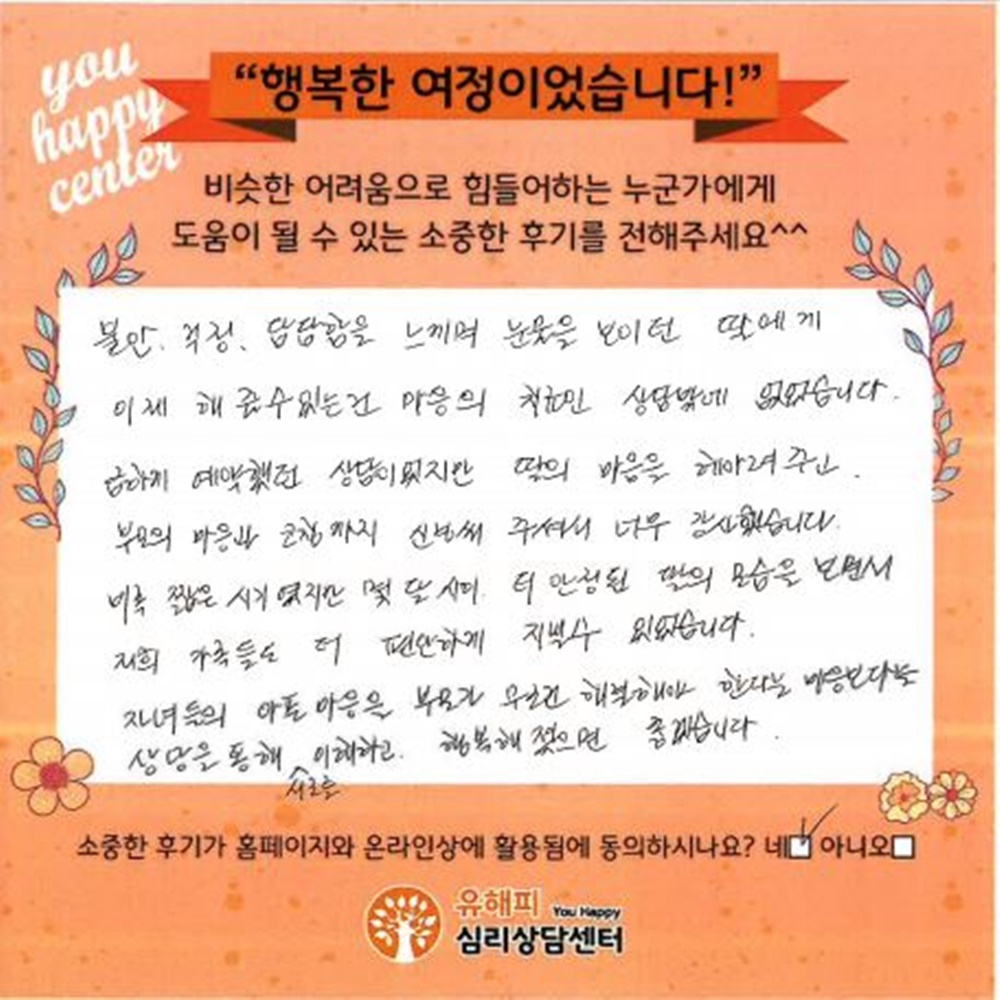 you
happy
center
“행복한 여정이었습니다!”
비슷한 어려움으로 힘들어하는 누군가에게
도움이 될 수 있는 소중한 후기를 전해주세요^^
불안, 걱정, 답답함을 느끼며 눈물을 보이던 딸에게
이제 해 줄수있는건 마음의 치료인 상담밖에 없었습니다.
급하게 예약했던 상담이었지만 딸의 마음을 헤아려주고.
부모의 마음과 고충까지 신경써 주셔서 너무 감사했습니다.
비록 짧은 시기였지만 몇 달 사이. 더 안정된 딸의 모습을 보면서
저희 가족들도 더 편안하게 지낼수 있었습니다.
자녀들의 아픈 마음을 부모가 무조건 해결해야 한다는 마음보다는
상담을 통해 서로를 이해하고. 행복해 졌으면 좋겠습니다.
소중한 후기가 홈페이지와 온라인상에 활용됨에 동의하시나요? 네 아니오
유해피 You Happy
심리상담센터